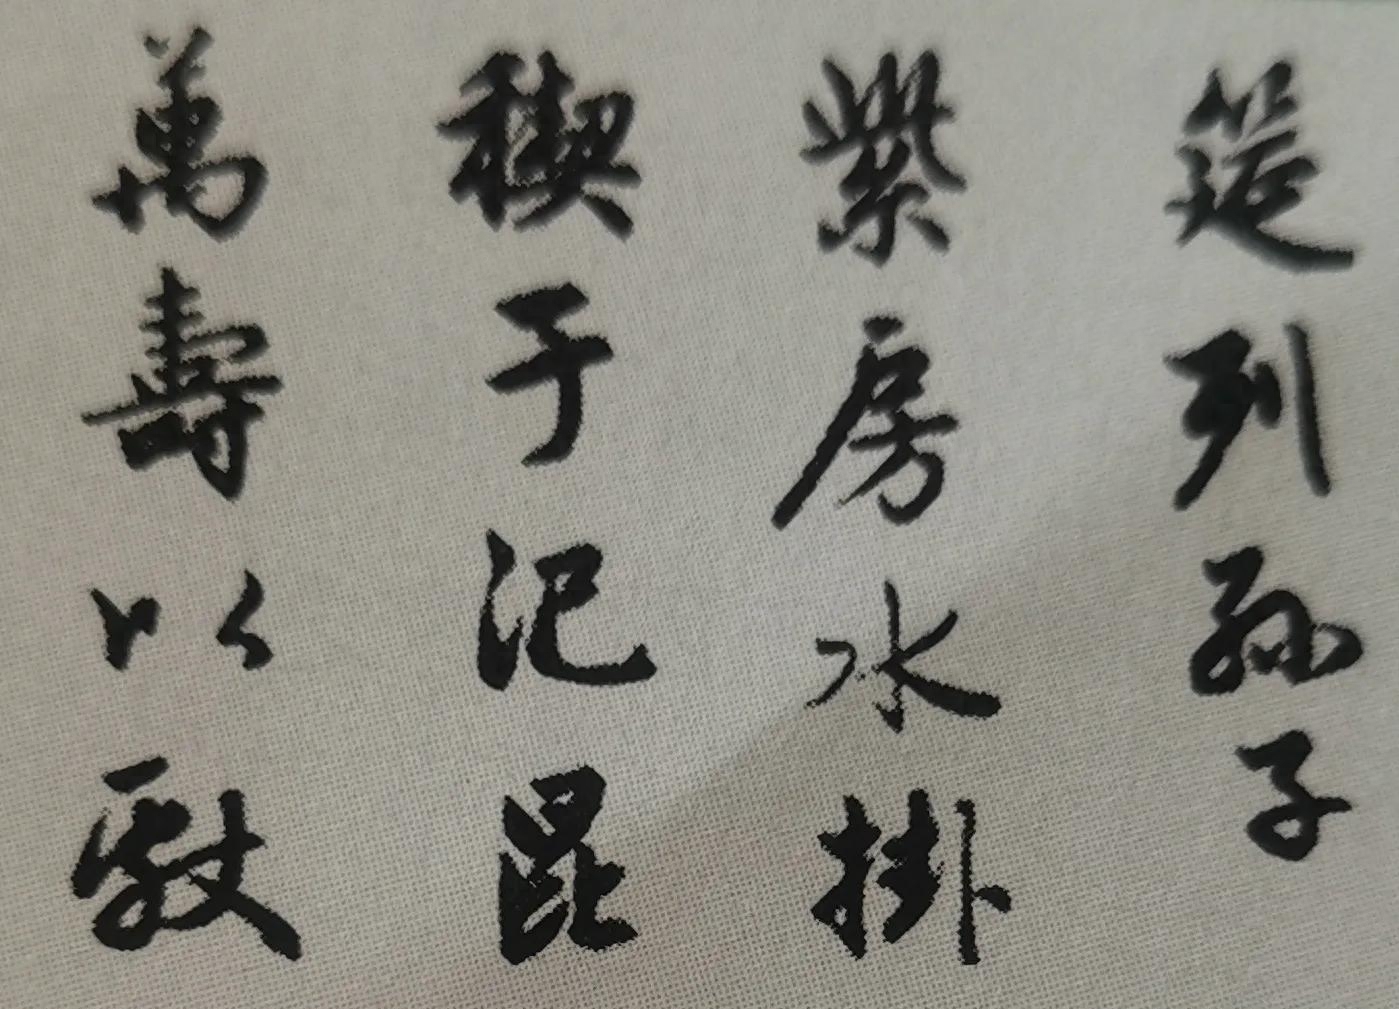 筵列孫子
紫房水掛
禊于汜昆
萬壽以獻